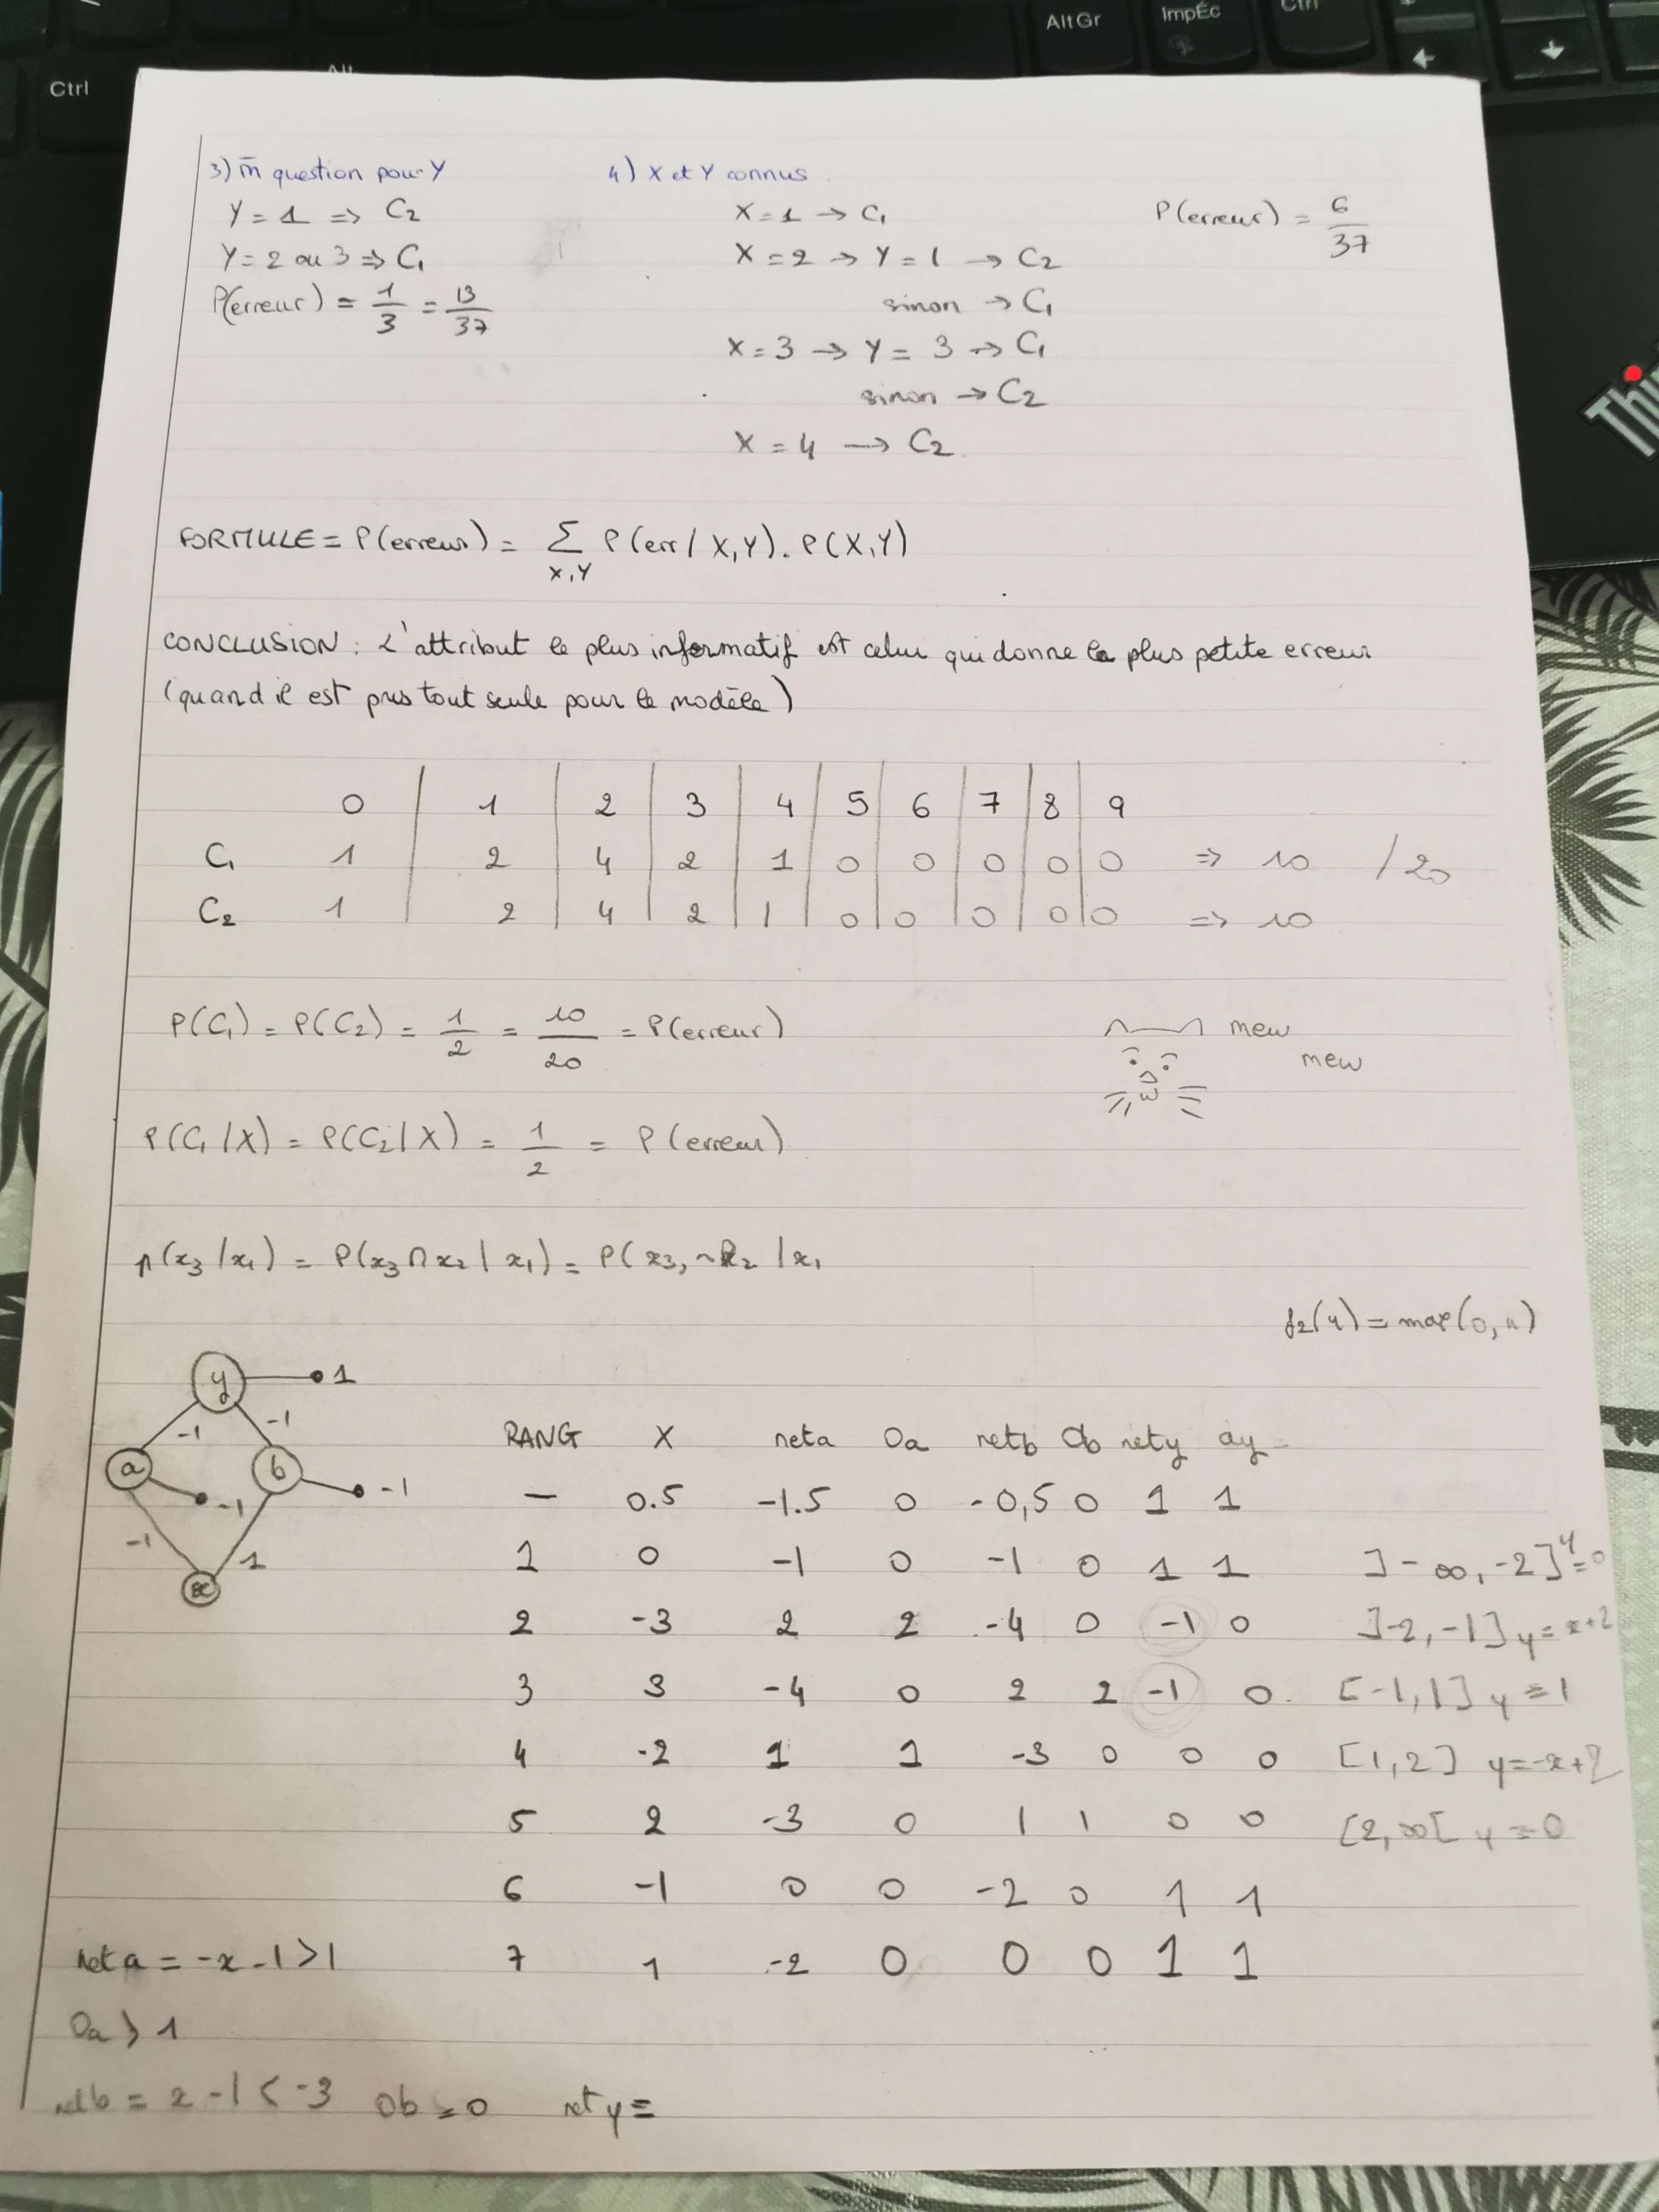 Ctrl
Alt
AltGr
ImpÉc
Ctrl
3) m̄ question pour Y
Y = 1 => C2
Y = 2 ou 3 => C1
P(erreur) = 1/3 = 13/37
4) X et Y connus
X = 1 -> C1
X = 2 -> Y = 1 -> C2
sinon -> C1
X = 3 -> Y = 3 -> C1
sinon -> C2
X = 4 -> C2
P(erreur) = 6/37
Thi
FORMULE = P(erreur) = Σ X,Y P(err/X,Y). P(X,Y)
CONCLUSION : L'attribut le plus informatif est celui qui donne la plus petite erreur
(quand il est pris tout seule pour le modèle)
0 | 1 | 2 | 3 | 4 | 5 | 6 | 7 | 8 | 9
C1 1 2 4 2 1 0 0 0 0 0 => 10 / 20
C2 1 2 4 2 1 0 0 0 0 0 => 10
P(C1) = P(C2) = 1/2 = 10/20 = P(erreur)
mew
mew
P(C1/X) = P(C2/X) = 1/2 = P(erreur)
p(x3/x1) = P(x3∩x2|x1) = P(x3, ~x2 |x1
f2(u) = max(0,u)
y 1
-1 -1
a b -1
-1
-1 1
x
RANG X neta Oa netb Ob nety ay
— 0.5 -1.5 0 -0,5 0 1 1
1 0 -1 0 -1 0 1 1 ]-∞,-2] y=0
2 -3 2 2 -4 0 -1 0 ]-2,-1] y=x+2
3 3 -4 0 2 2 -1 0 [-1,1] y=1
4 -2 1 1 -3 0 0 0 [1,2] y=-x+2
5 2 -3 0 1 1 0 0 [2,∞[ y=0
6 -1 0 0 -2 0 1 1
7 1 -2 0 0 0 1 1
net a = -x-1>1
Oa > 1
netb = x-1<-3 Ob=0 net y =